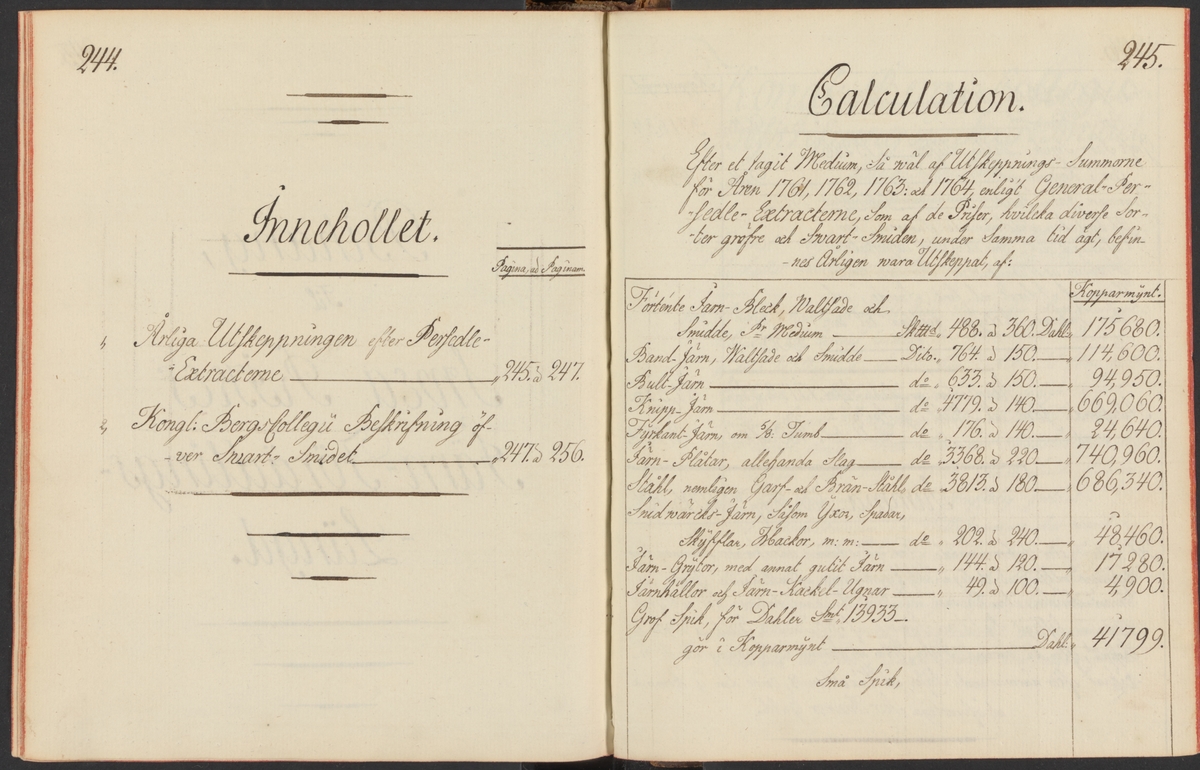 244.
Innehollet.
Pagina ad Paginam
" Årliga Utskeppningen efter Persedle-
-Extracterne " 245. à 247.
" Kongl: Bergs Collegii Beskrifning öf-
-ver Svart-Smidet " 247. à 256.
245.
Calculation.
Efter et tagit Medium, så wäl af Utskeppnings-Summorne
för Åren 1761, 1762, 1763: och 1764, enligt General-Per-
-sedle-Extracterne, som af de Priser, hvilcka diverse Sor-
-ter gröfre och Swart-Smiden, under samma tid ägt, befin-
-nes Årligen wara Utskeppat, af:
Kopparmynt.
Förtente Järn-Bleck, Waltsade och
Smidde, Pr Medium Skttd. 488. à 360. Dahlr 175680.
Band-Järn, Waltsade och Smidde Dito. 764. à 150. " 114,600.
Bult-Järn do " 633. à 150. " 94,950.
Knipp-Järn do " 4779. à 140. " 669,060.
Fyrkant-Järn, om 5/8. Tumb do " 176. à 140. " 24,640.
Järn-Plåtar, allehanda slag do " 3368. à 220. " 740,960.
Stähl, nemligen Garf- och Brän-Ståhl, do " 3813. à 180. " 686,340.
Smidwärcks-Järn, såsom Yxor, Spadar,
Skyfflar, Hackor, m: m: do " 202. à 240. " 48,460.
Järn-Grytor, med annat gutit Järn " 144. à 120. " 17280.
Järnhällor och Järn-Kackel-Ugnar " 49. à 100. " 4,900.
Grof Spik, för Dahler Smt. 13933.
gör i Kopparmynt Dahlr 41799.
Små Spik,